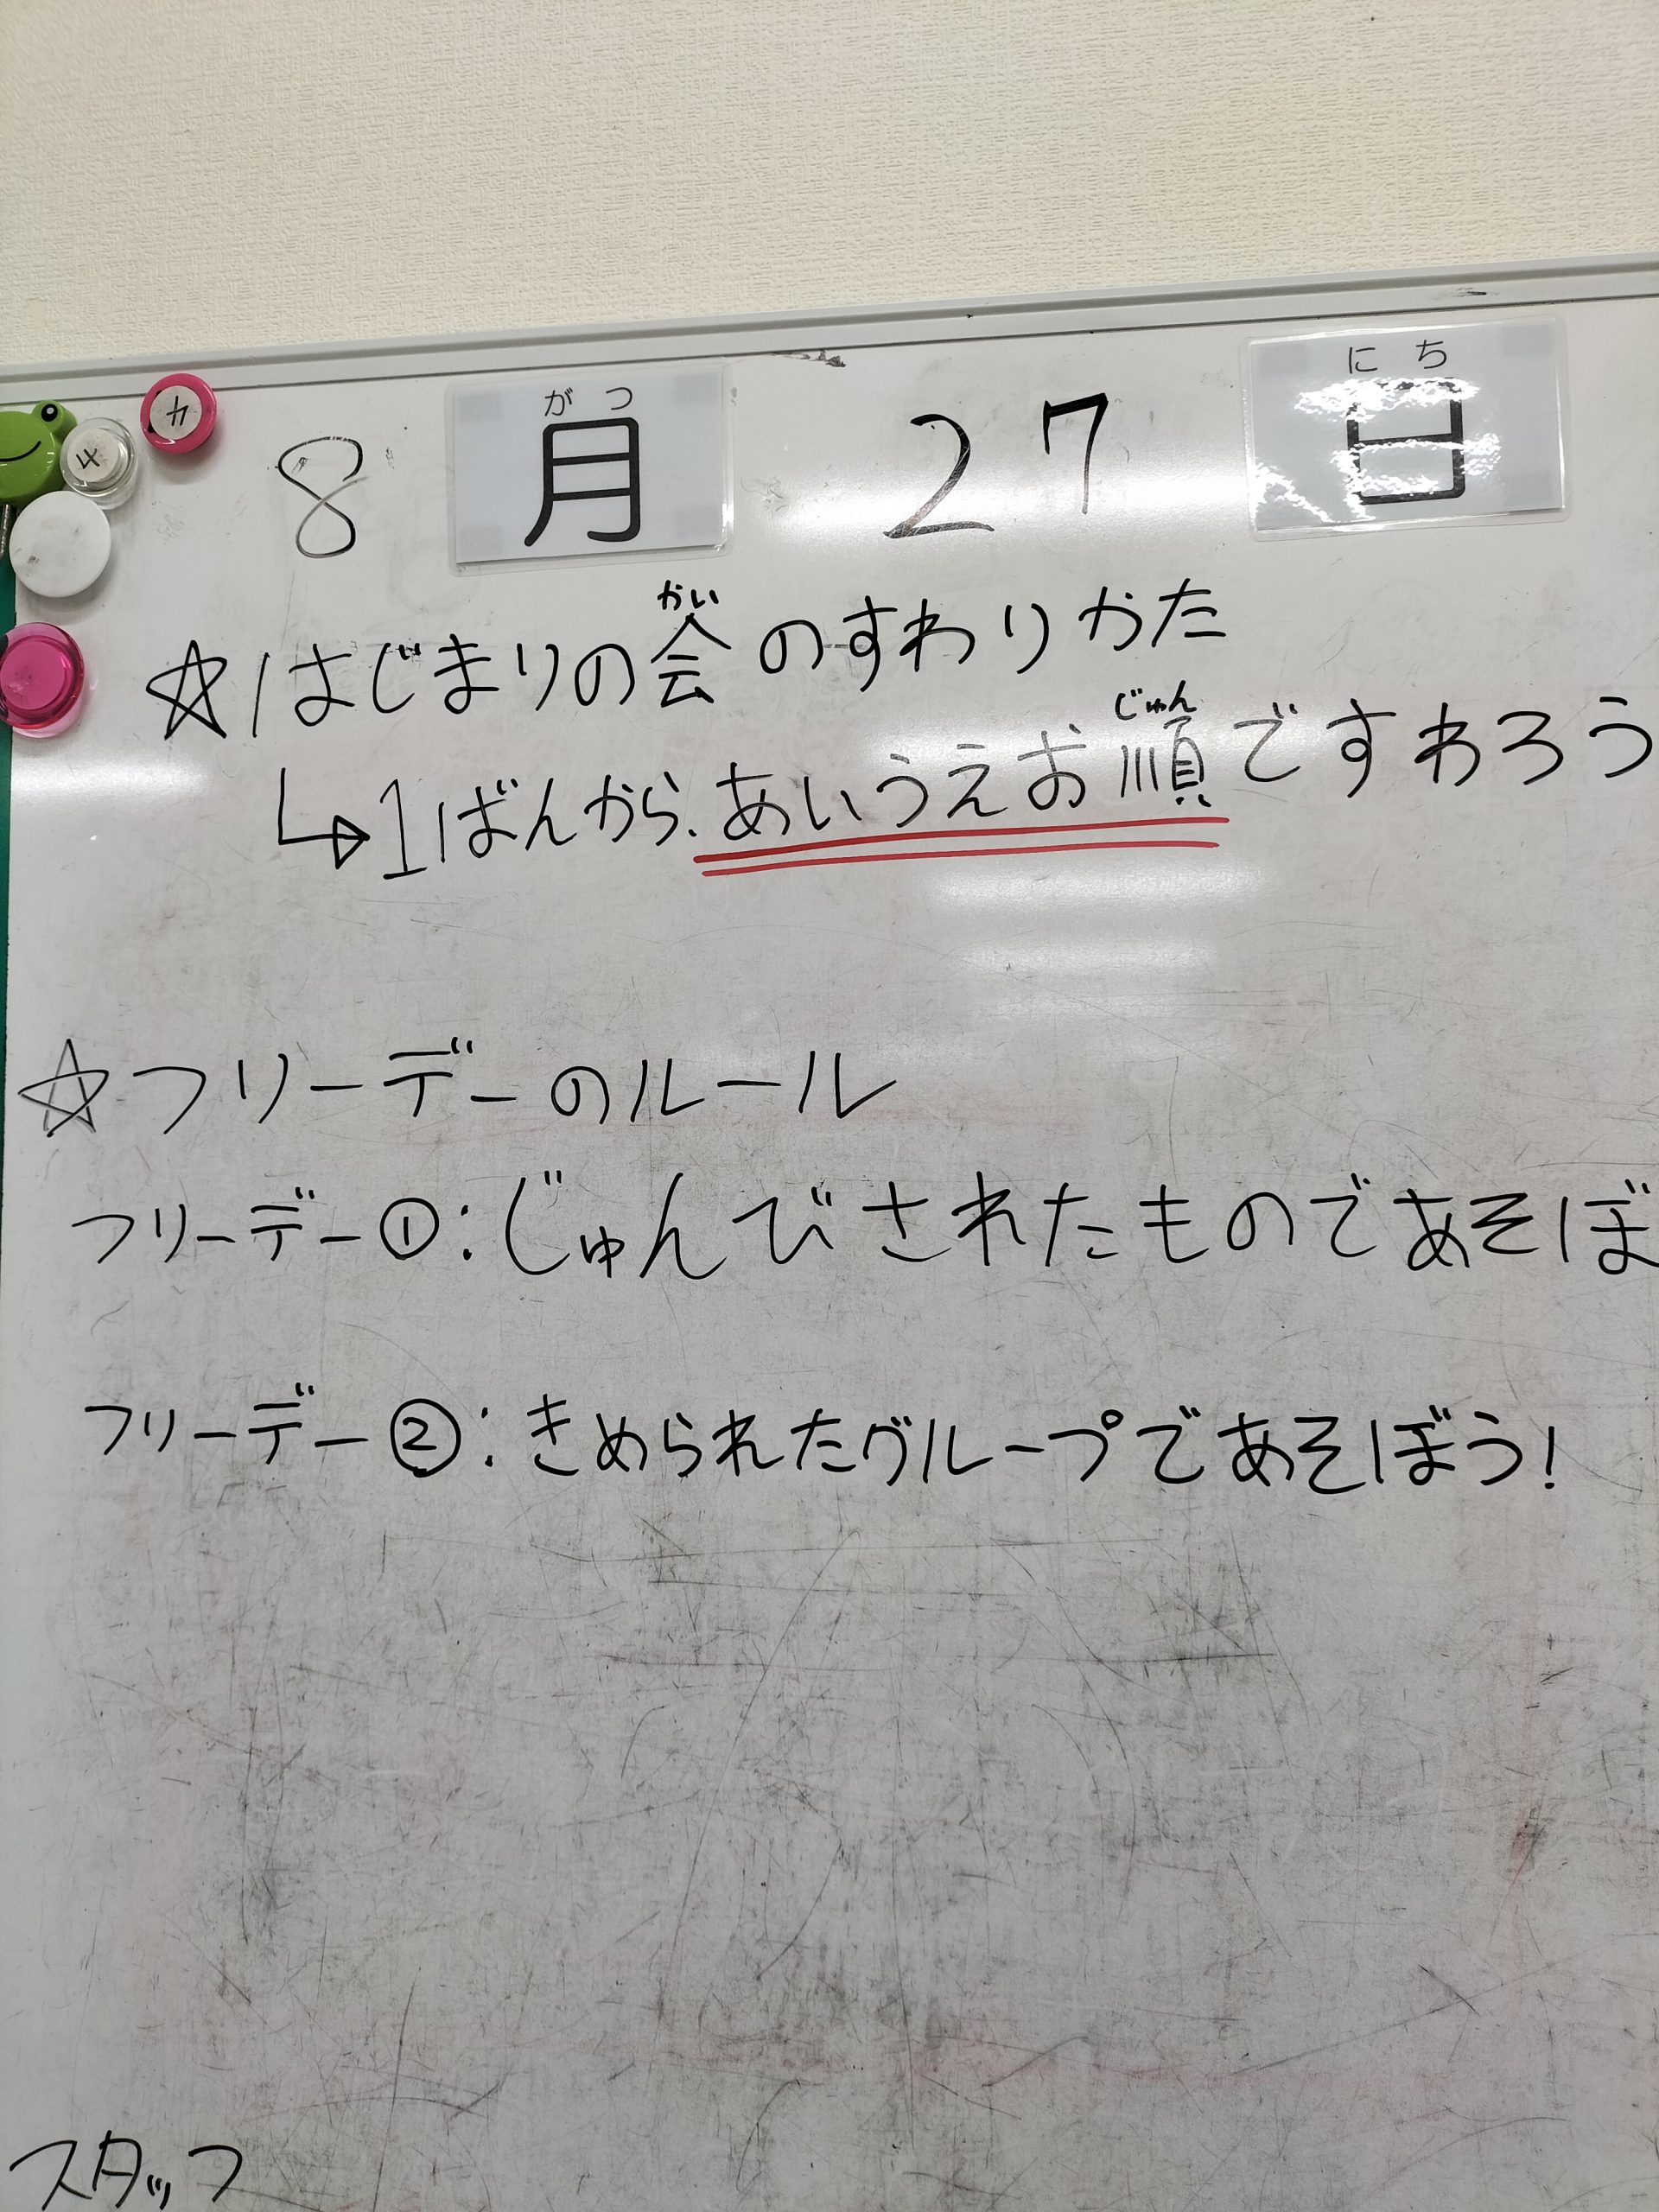 がつ にち
8月27日
かい
☆はじまりの会のすわりかた
じゅん
↳1ばんから、あいうえお順ですわろう
☆フリーデーのルール
フリーデー①:じゅんびされたものであそぼ
フリーデー②:きめられたグループであそぼう!
スタッフ
4
4